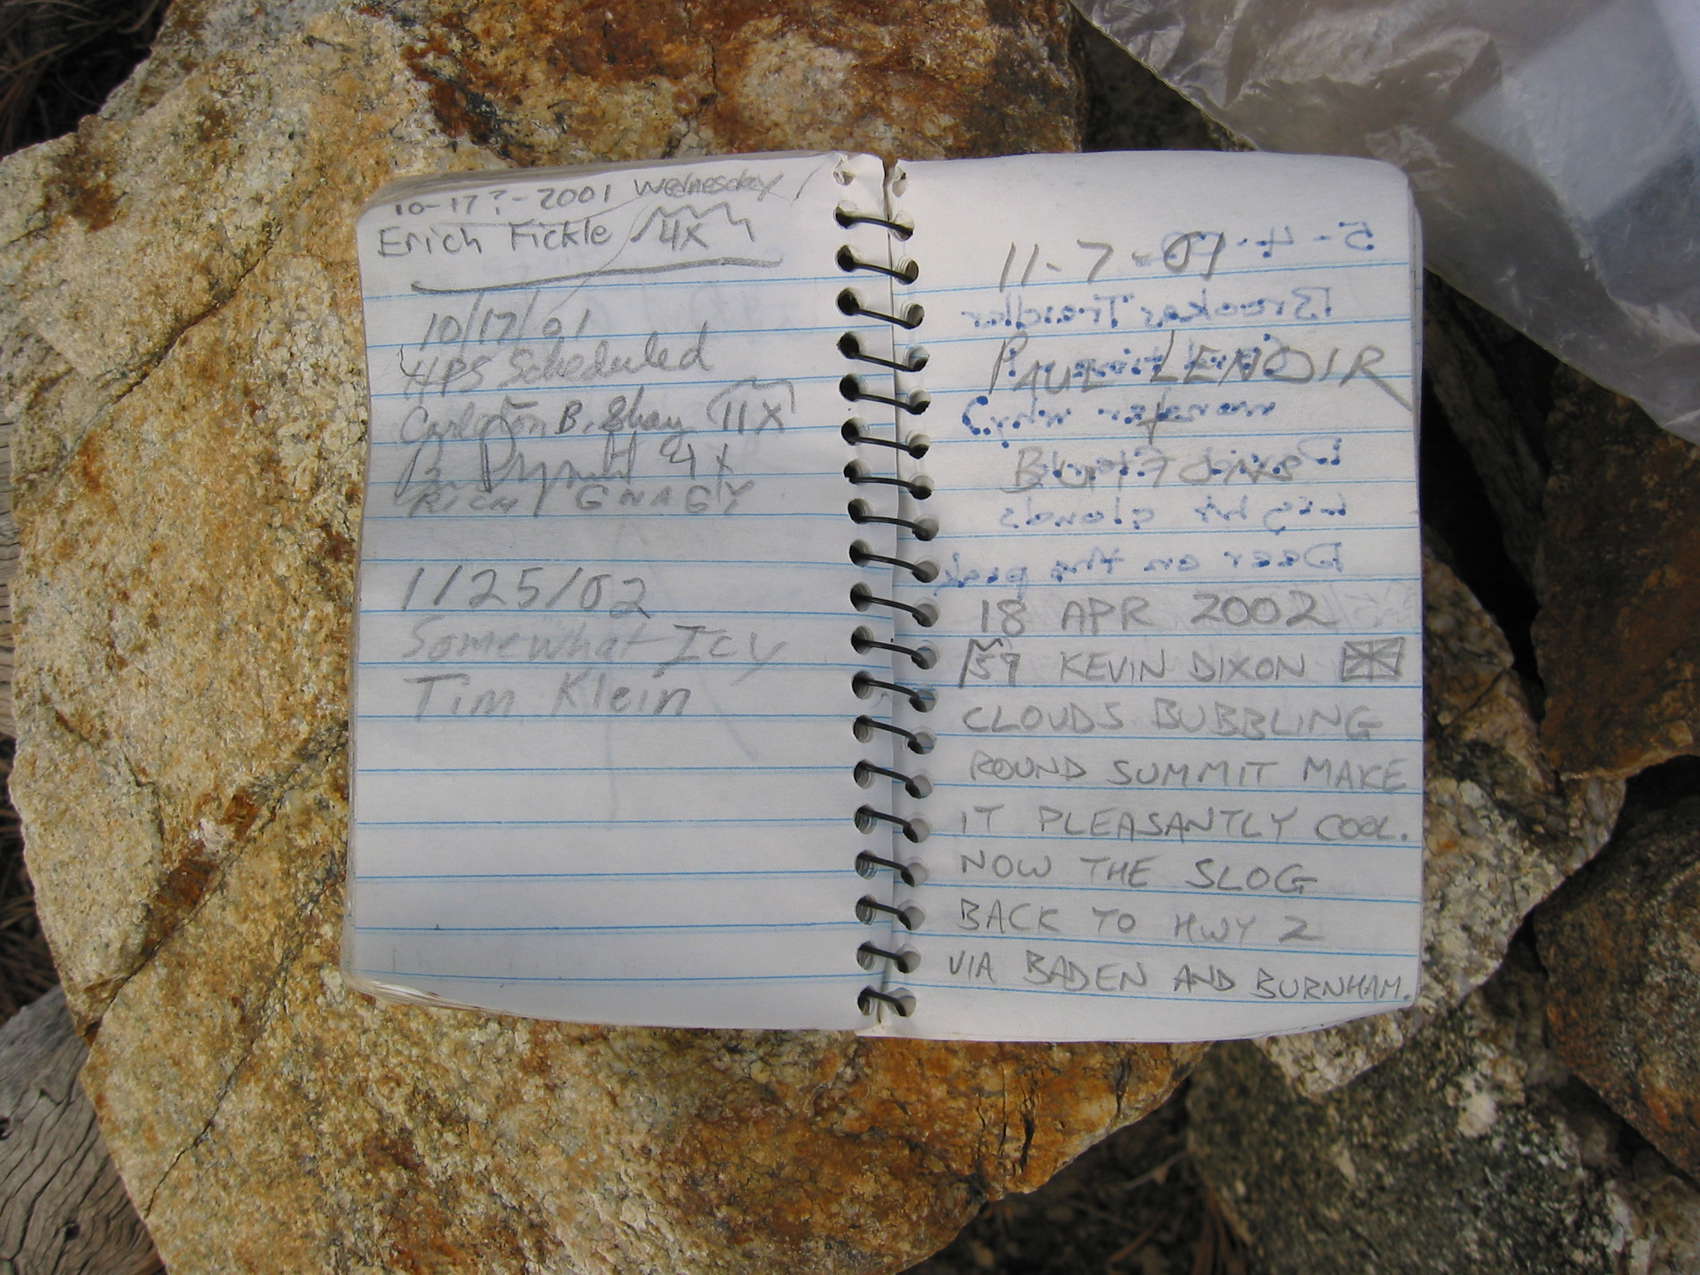 10-17?-2001 Wednesday
Erich Fickle 4X
10/17/01
HPS Scheduled
Carleton B. Shay 11X
4X
RICH GNAGY
1/25/02
Somewhat Icy
Tim Klein
11-7-01
PAUL LENOIR
+
18 APR 2002
59 KEVIN DIXON
CLOUDS BUBBLING
ROUND SUMMIT MAKE
IT PLEASANTLY COOL.
NOW THE SLOG
BACK TO HWY 2
VIA BADEN AND BURNHAM.